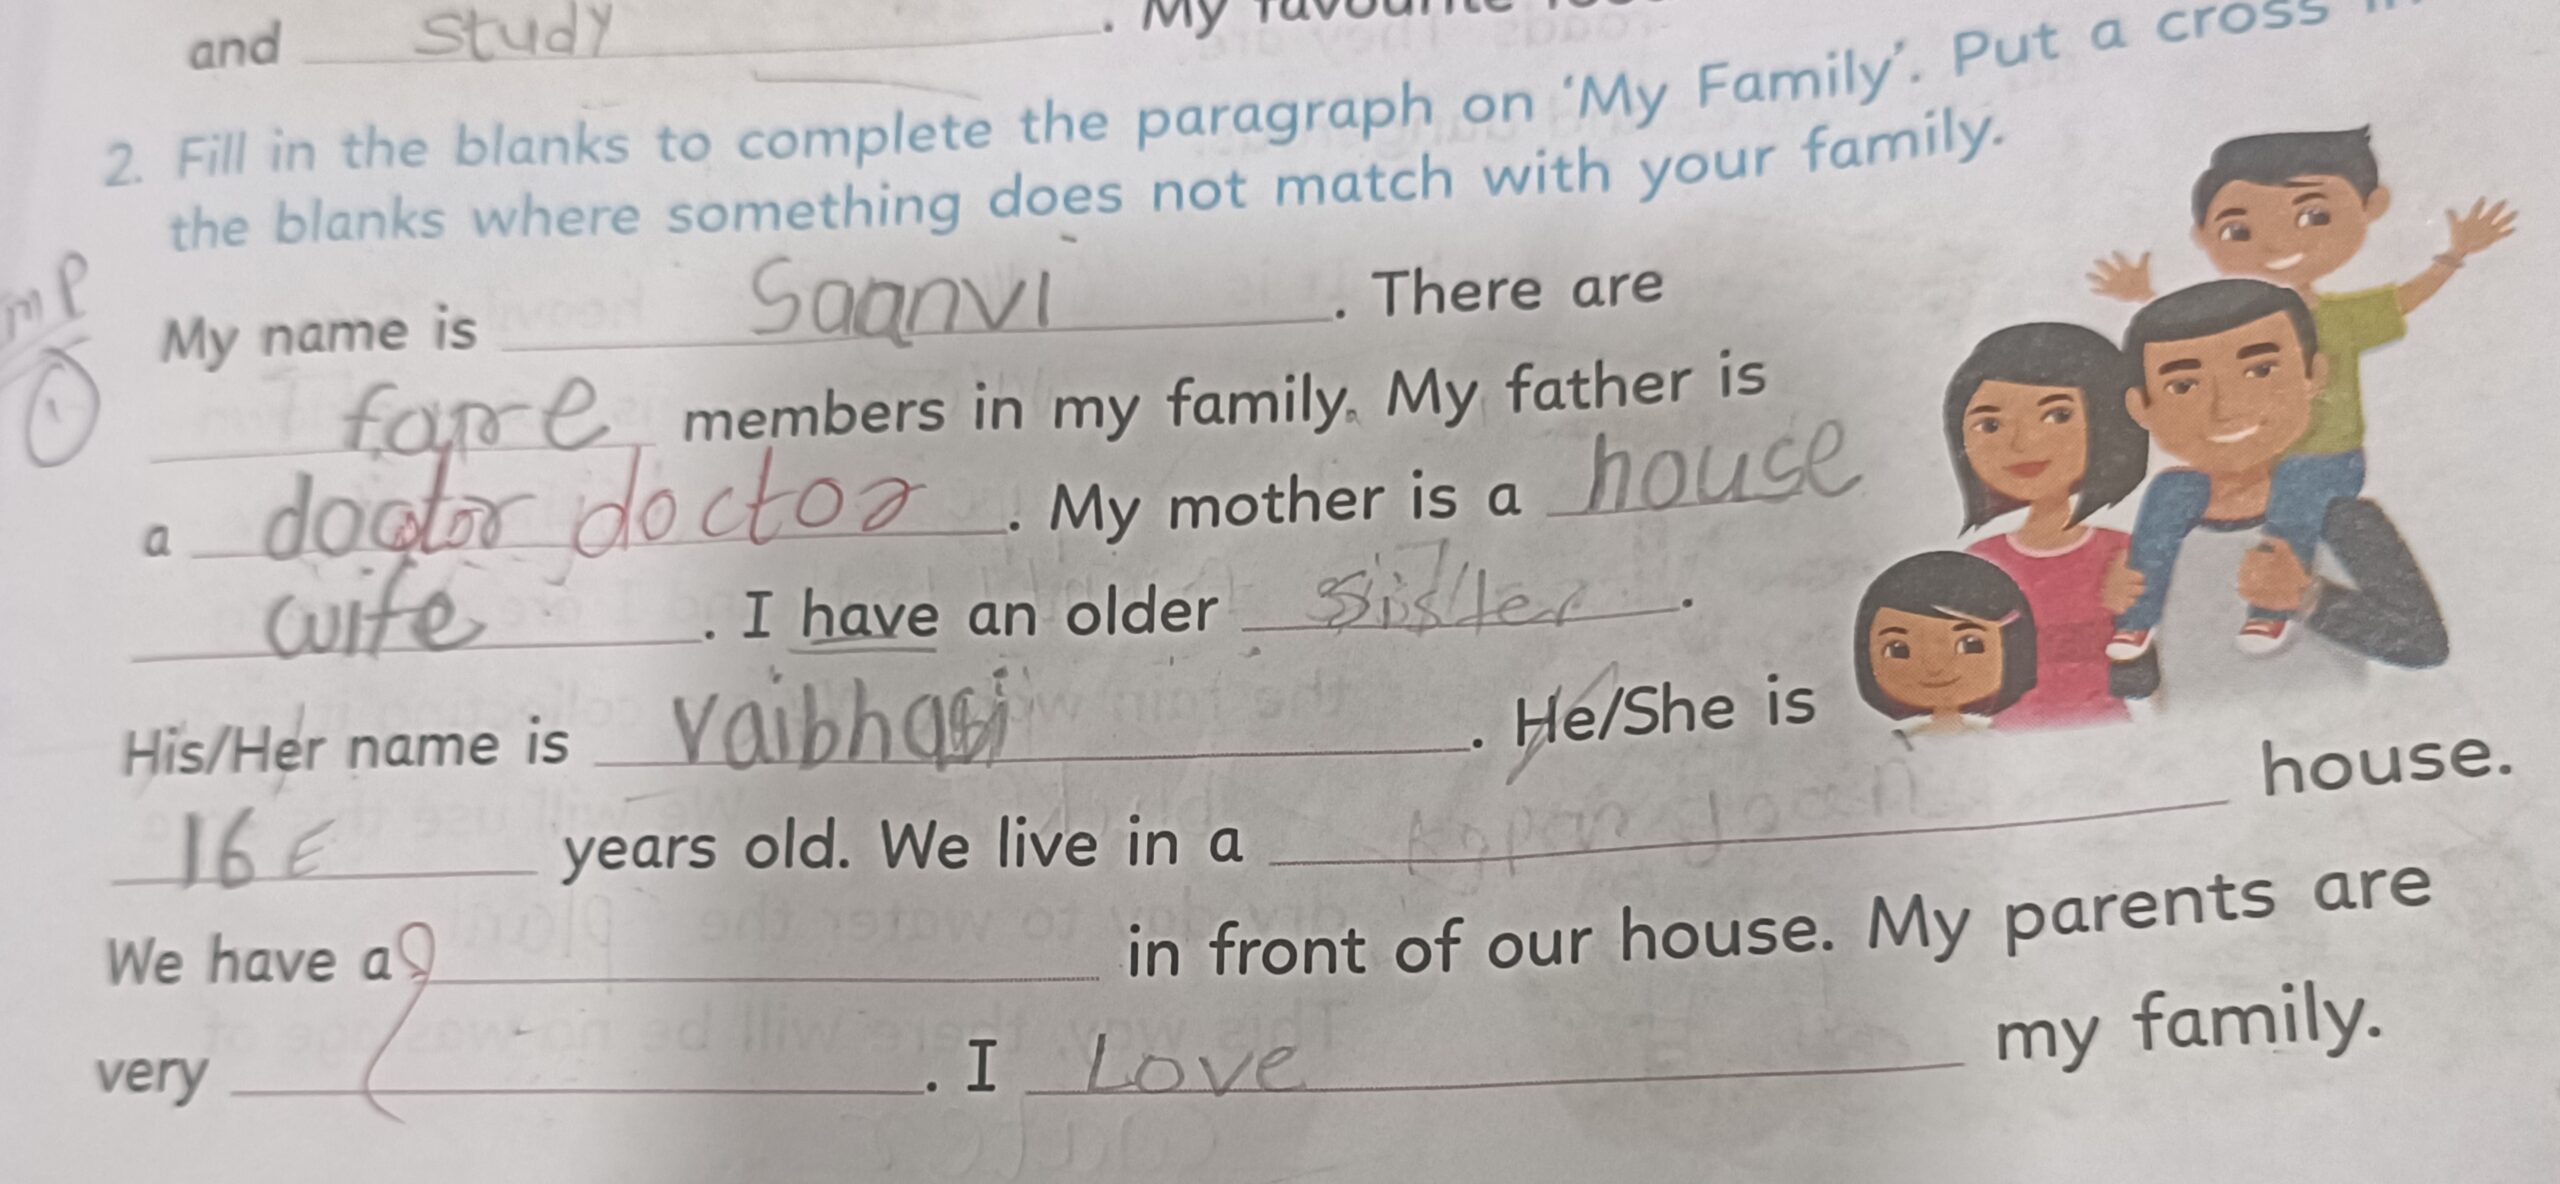 and study . My favourite
2. Fill in the blanks to complete the paragraph on ‘My Family’. Put a cross in
the blanks where something does not match with your family.
My name is Saanvi . There are
members in my family. My father is
a doctor doctor . My mother is a house
wife . I have an older sister .
His/Her name is . He/She is
16 years old. We live in a house.
We have a in front of our house. My parents are
very . I Love my family.